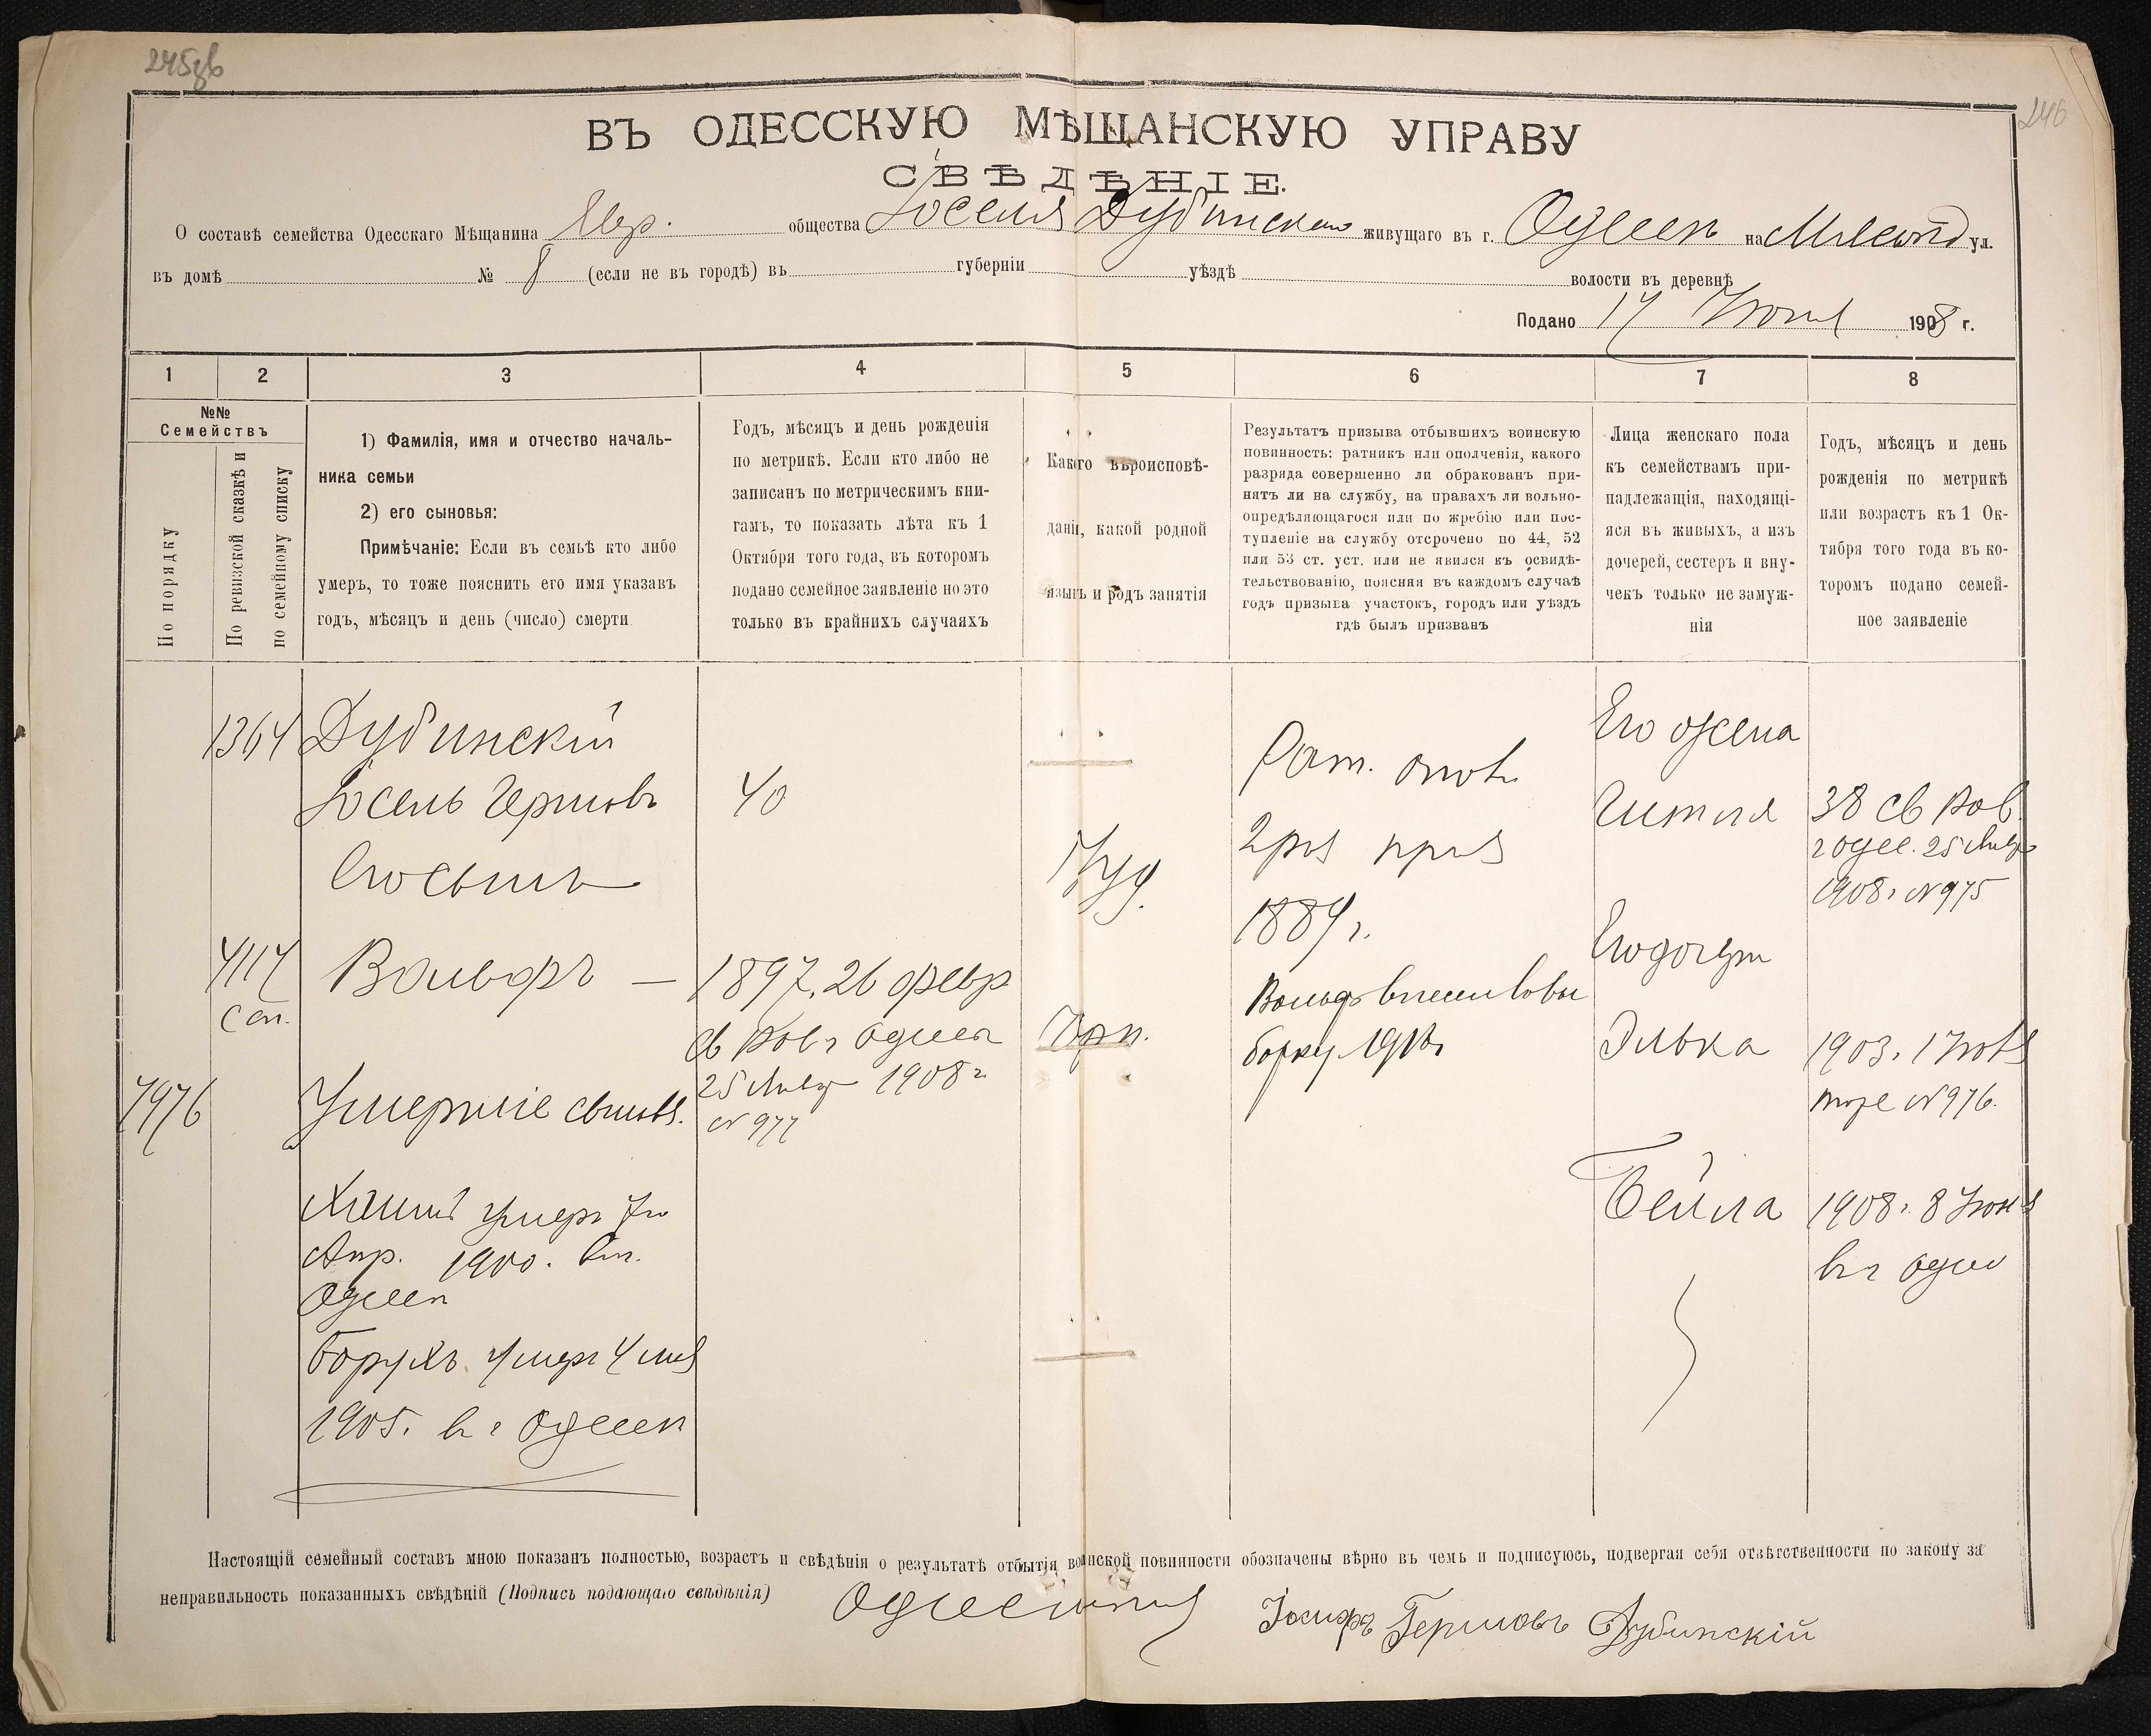 246
ВЪ ОДЕССКУЮ МѢЩАНСКУЮ УПРАВУ
СВѢДѢНІЕ.
О составѣ семейства Одесскаго Мѣщанина Евр. общества Іоселя Дубинскаго живущаго въ г. Одессѣ на ул.
въ домѣ № 8 (если не въ городѣ) въ губерніи уѣздѣ волости въ деревнѣ
Подано 17 1908 г.
1 2 3 4 5 6 7 8
№№
Семействъ
По порядку
По ревизской сказкѣ и
по семейному списку
1) Фамилія, имя и отчество началь-
ника семьи
2) его сыновья:
Примѣчаніе: Если въ семьѣ кто либо
умеръ, то тоже пояснить его имя указавъ
годъ, мѣсяцъ и день (число) смерти
Годъ, мѣсяцъ и день рожденія
по метрикѣ. Если кто либо не
записанъ по метрическимъ кни-
гамъ, то показать лѣта къ 1
Октября того года, въ которомъ
подано семейное заявленіе но это
только въ крайнихъ случаяхъ
Какого вѣроисповѣ-
данія, какой родной
языкъ и родъ занятія
Результатъ призыва отбывшихъ воинскую
повинность: ратникъ или ополченія, какого
разряда совершенно ли обракованъ при-
нятъ ли на службу, на правахъ ли вольно-
опредѣляющагося или по жребію или пос-
тупленіе на службу отсрочено по 44, 52
или 53 ст. уст. или не явился къ освидѣ-
тельствованію, поясняя въ каждомъ случаѣ
годъ призыва участокъ, городъ или уѣздъ
гдѣ былъ призванъ
Лица женскаго пола
къ семействамъ при-
надлежащія, находящі-
яся въ живыхъ, а изъ
дочерей, сестеръ и вну-
чекъ только не замуж-
нія
Годъ, мѣсяцъ и день
рожденія по метрикѣ
или возрастъ къ 1 Ок-
тября того года въ ко-
торомъ подано семей-
ное заявленіе
1364
Дубинскій
Іосель Гершовъ
40
Его сынъ
4114
Вольфъ — 1897. 26 февр
25 Янвр 1908 г
№ 977
7976
Умершіе сыновья.
умеръ
Апр. 1900. въ г.
Одессѣ
Борухъ умеръ 4 мая
1905. въ г Одессѣ
Іуд.
Рат. опол.
2 раз приз
1889 г.
Его жена
Гитля
38 св Рав.
г Одес. 25 Янвр
1908 г № 975
Его дочери
Элька
1903. 1 Ноя
тоже № 976.
Бейла
1908 г. 8 Июня
въ г Одес
Настоящій семейный составъ мною показанъ полностью, возрастъ и свѣдѣнія о результатѣ отбытія воинской повинности обозначены вѣрно въ чемъ и подписуюсь, подвергая себя отвѣтственности по закону за
неправильность показанныхъ свѣдѣній (Подпись подающаго свѣдѣнія)
Іосифъ Гершовъ Дубинскій